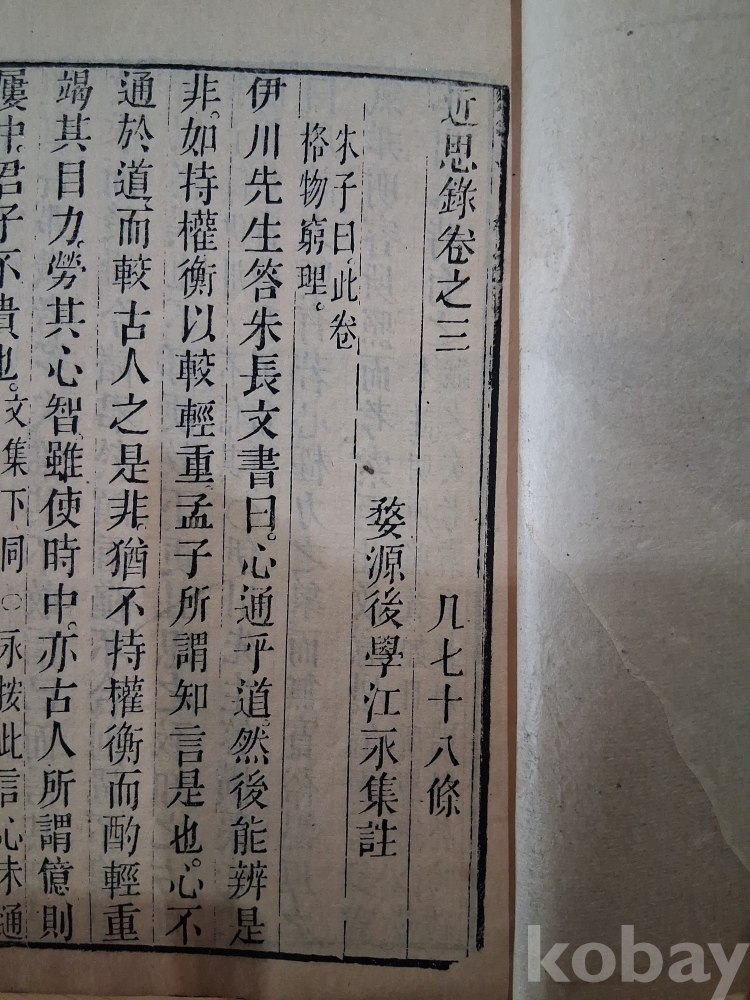 近思錄卷之三
凡七十八條
婺源後學江永集註
朱子曰。此卷
格物窮理。
伊川先生答朱長文書曰。心通乎道。然後能辨是
非。如持權衡以較輕重。孟子所謂知言是也。心不
通於道。而較古人之是非。猶不持權衡而酌輕重
竭其目力。勞其心智。雖使時中。亦古人所謂億則
屢中。君子不貴也。文集下同○永按此言心未通
kobay